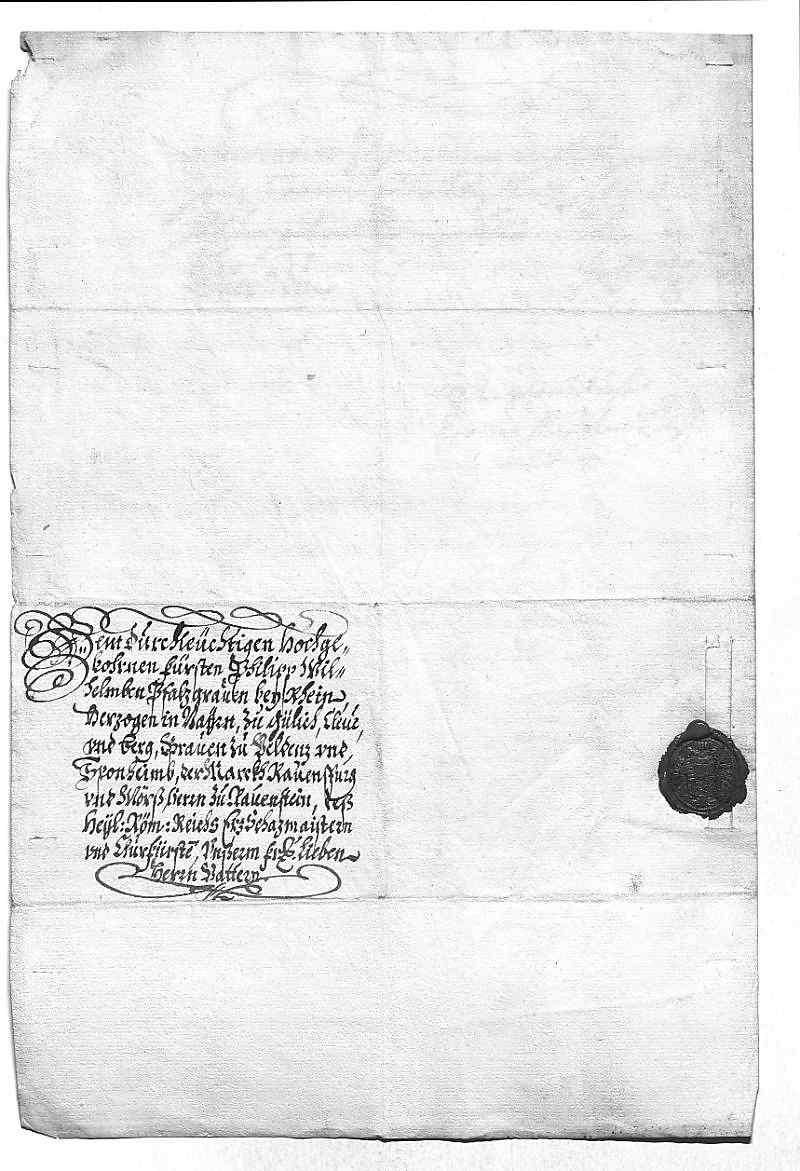 Dem Durchleüchtigen Hochge„
bohrnen Fürsten Philipp Wil„
helmben Pfalzgrauen bey Rhein,
Herzogen in Bayrn, zu Gülich, Cleue,
vnd Berg, Grauen zu Veldenz vnd,
Sponheimb, der Marckh Rauenspurg
vnd Mörß Herrn zu Rauenstein, deß
Heyl: Röm: Reichs Erzschazmaistern
vnd Churfürstē, Vnßerm lieben
Herrn Vattern